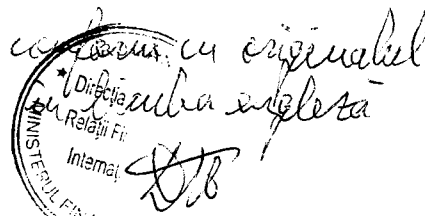 conform cu originalul
în limba engleză
★ Direcția
Relații Fi
Internaț
MINISTERUL FINA